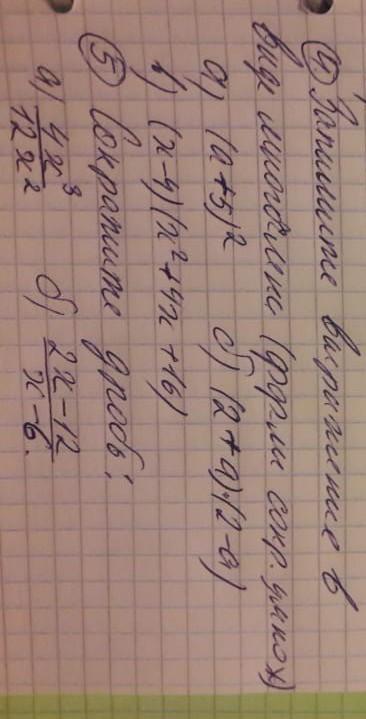 ④ Запишите выражение в
виде многочлена (форм. сокр. умнож)
а) (a+5)² б) (2+a)·(2-a)
в) (x-4)(x²+4x+16)
⑤ Сократите дробь:
а) 4x³/12x² б) 2x-12/x-6.